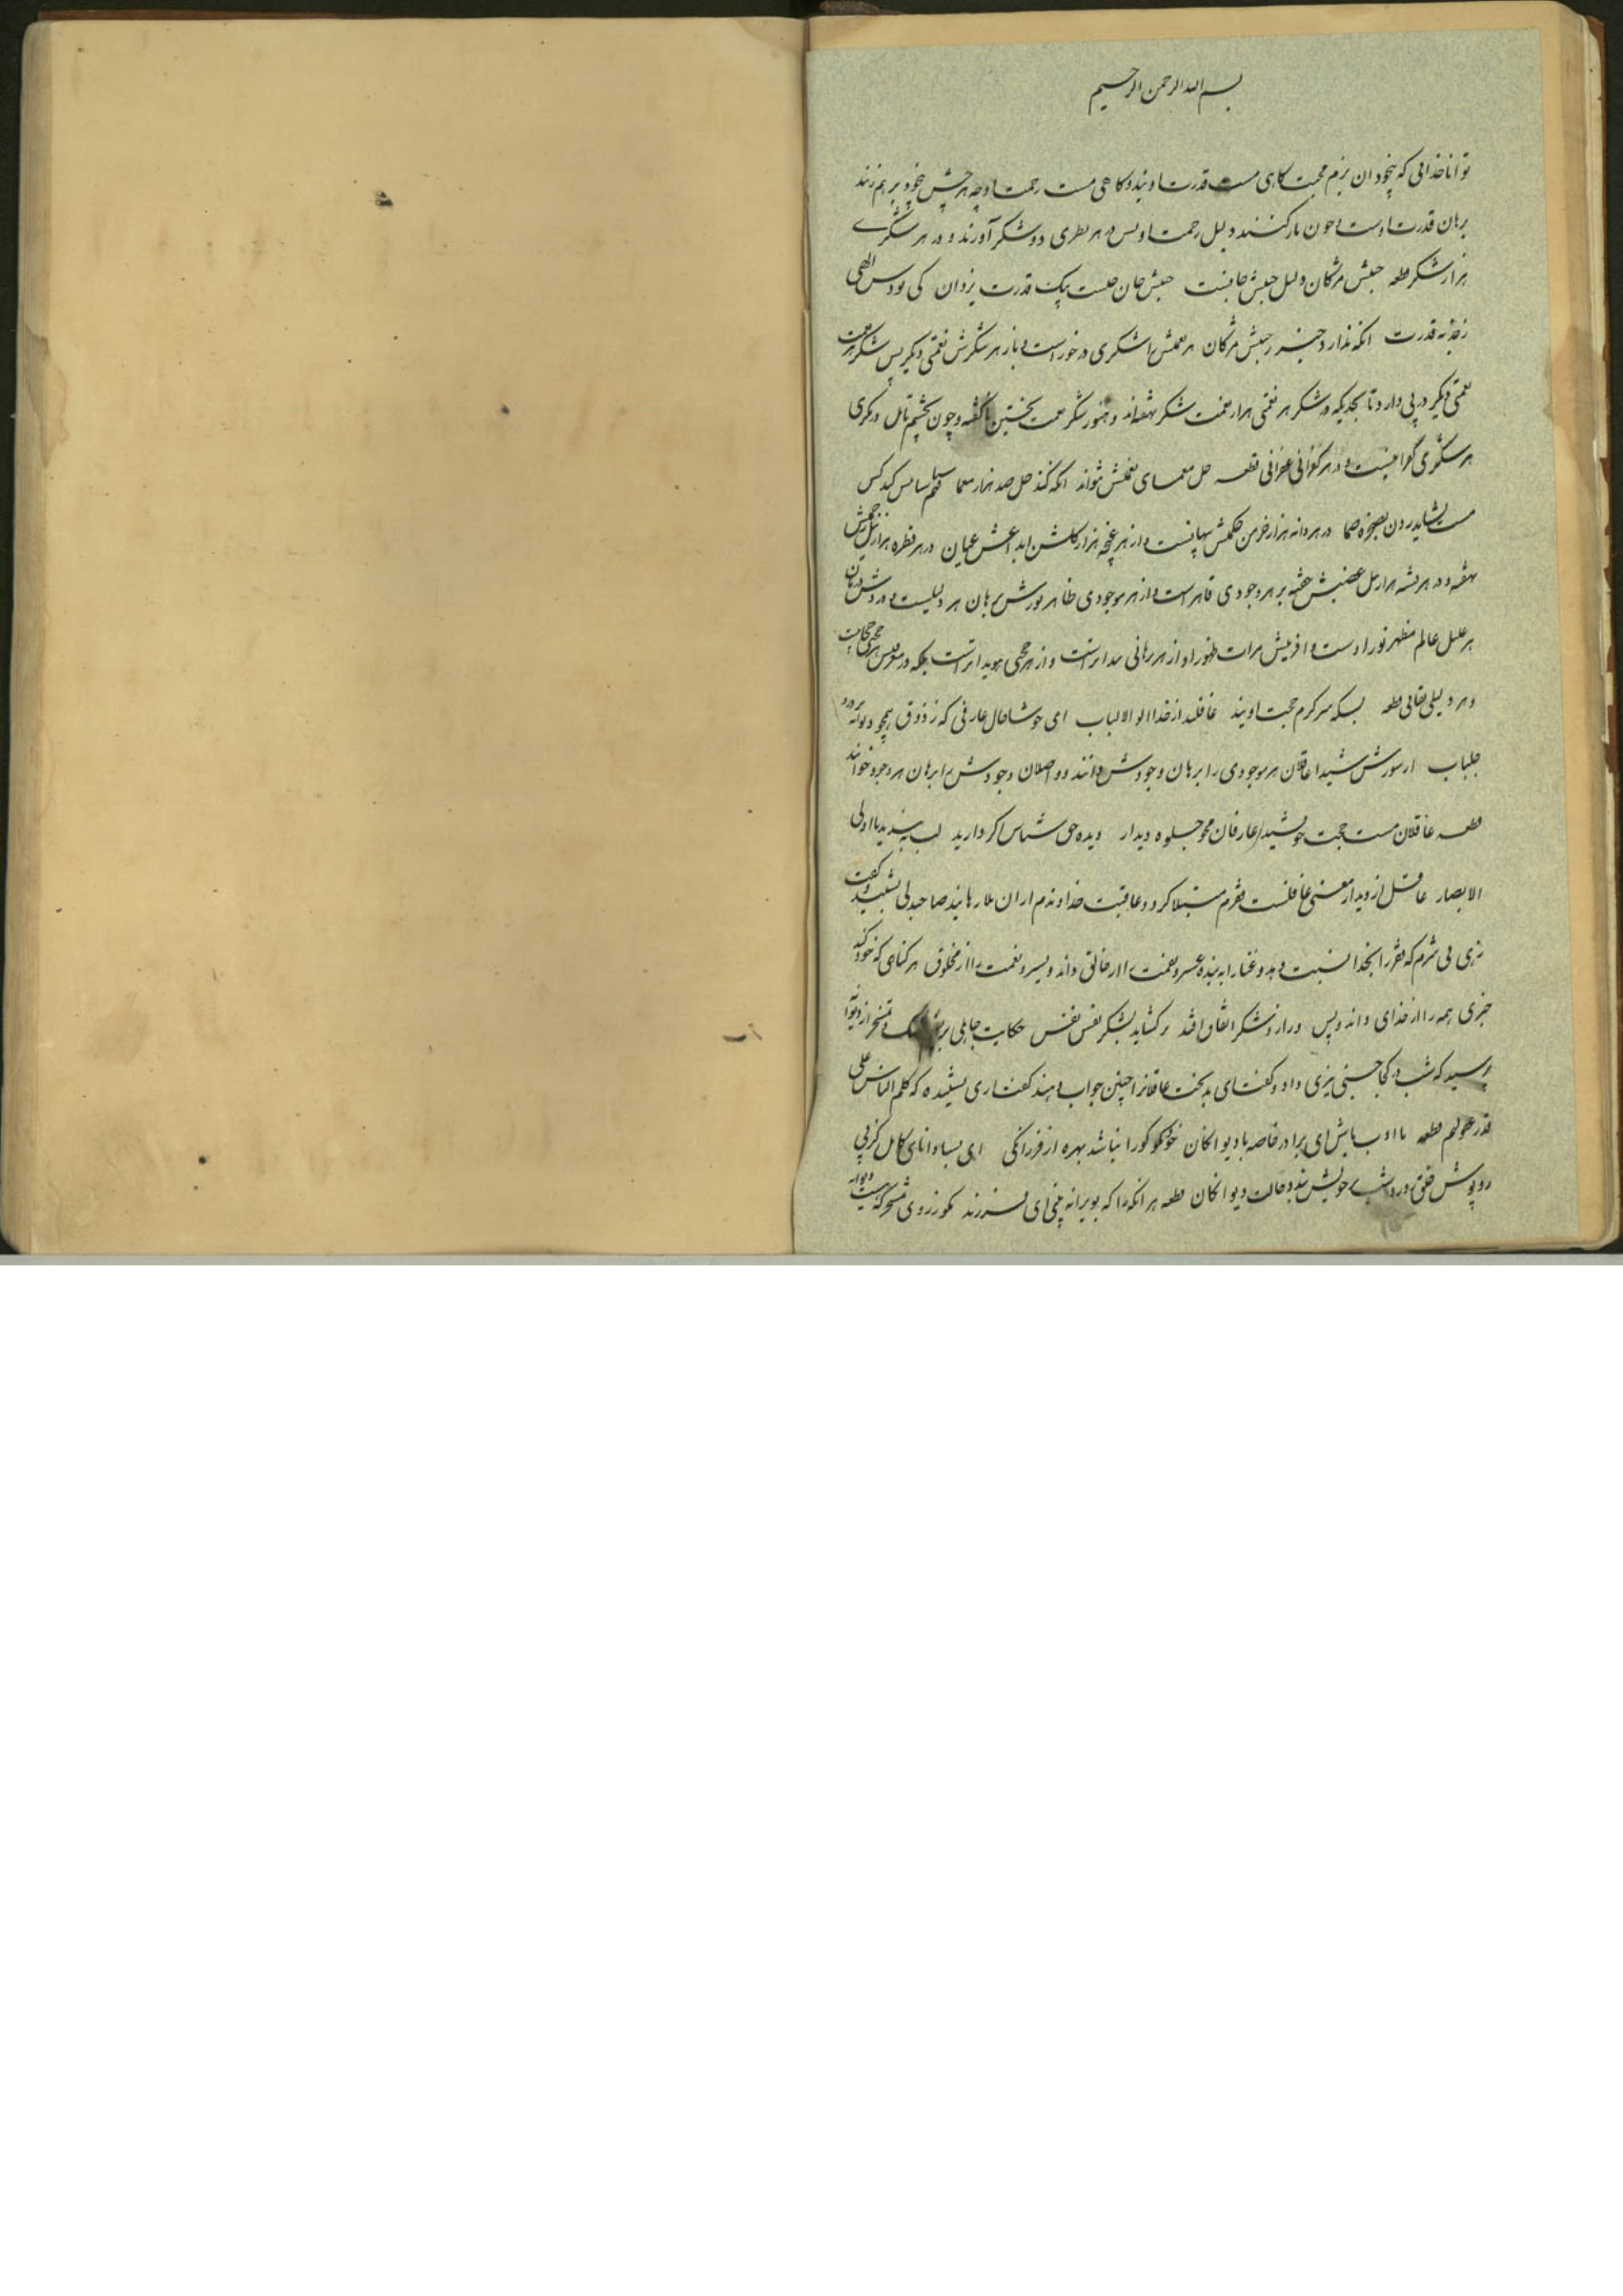 بسم الله الرحمن الرحیم
توانا خدائی که بیخودان بزم محبت کاهی مست قدرت اویند و کاهی مست رحمت او چه هر چشم بخود بر هم زنند
برهان قدرت اوست و چون باز کنند دلیل رحمت او پس در هر نظری دو شکر آورند و در هر شکرے
هزار شکر قطعه جنبش مژکان دلیل جنبش جانست جنبش جان چیست پیک قدرت یزدان کی بود
قدرت انکه ندارد خبر ز جنبش مژکان هر نعمتش را شکری در خور است و باز هر شکرش نعمتی دیکر پس شکر هر نعمت
نعمتی دیکر در پی دارد تا بحدیکه در شکر هر نعمتی هزار نعمت شکر نهفته اند و هنوز شکر نعمت نخستین ناکفته و چون بچشم تامل درنکری
هر شکری کفرانیست و در هر کفرانی غفرانی قطعه حل معمای نعمتش نتواند انکه کند حل صد هزار معما کس
نشاید بصخره صما در هر دانه هزار خرمن حکمتش پنهانست و از هر غنچه هزار کلشن ابداعش عیان در هر قطره هزار نیل رحمتش
نهفته و در هر پشه هزار پیل غضبش خفته بر هر وجودی قاهر است و از هر موجودی ظاهر نورش برهان هر دلیلیست و دردش درمان
هر علیل عالم مظهر نور اوست و افرینش مرات ظهور او از هر برهانی پیداتر است و از هر حجتی هویداتر است بلکه در معنیش هر حجتی حجابیست
و هر دلیلی نقابی قطعه بسکه سرکرم حجت اویند غافلند از خدا اولو الالباب ای خوشا حال عارفی که ز ذوق همچو دیوانه بر درد
جلباب از شورش شیدا عاقلان هر موجودی را برهان وجودش دانند و واصلان وجودش را برهان هر وجود خوانند
قطعه عاقلان مست حجت خویشند عارفان محو جلوه دیدار دیده حق شناس اکر دارید لب ببندید یا اولی
الابصار عاقل از دیدار معنی غافلست فقرم مبتلا کرد و عاقبت خداوندم از ان بلا رهانید صاحبدلی بشنید و کفت
زهی بی شرم که فقر را بخدا نسبت دهد و غنا را به بنده عسر و نقمت را از خالق داند و یسر و نعمت را از مخلوق هر کناهی که خود کند
جبری همه را از خدای داند و بس ور از و شکر اتفاق افتد بر کشاید بشکر نفس نفس حکایت جاهلی تمسخر از دیوانه
پرسید که شب در کجا خسبی تیزی داد و کفت ای بدبخت عاقلانرا چنین جواب دهند کفت اری نشنیده که کلم الناس علی
قدر عقولهم قطعه با ادب باش ای برادر خاصه با دیوانکان خو نکو کو را نباشد بهره از فرزانکی ای بسا دانای کامل کز پی
روپوش خلق در خویش بندد حالت دیوانکان قطعه هر انکه را که بویرانه بینی ای فرزند مکو ز روی تمسخر که دیوانه